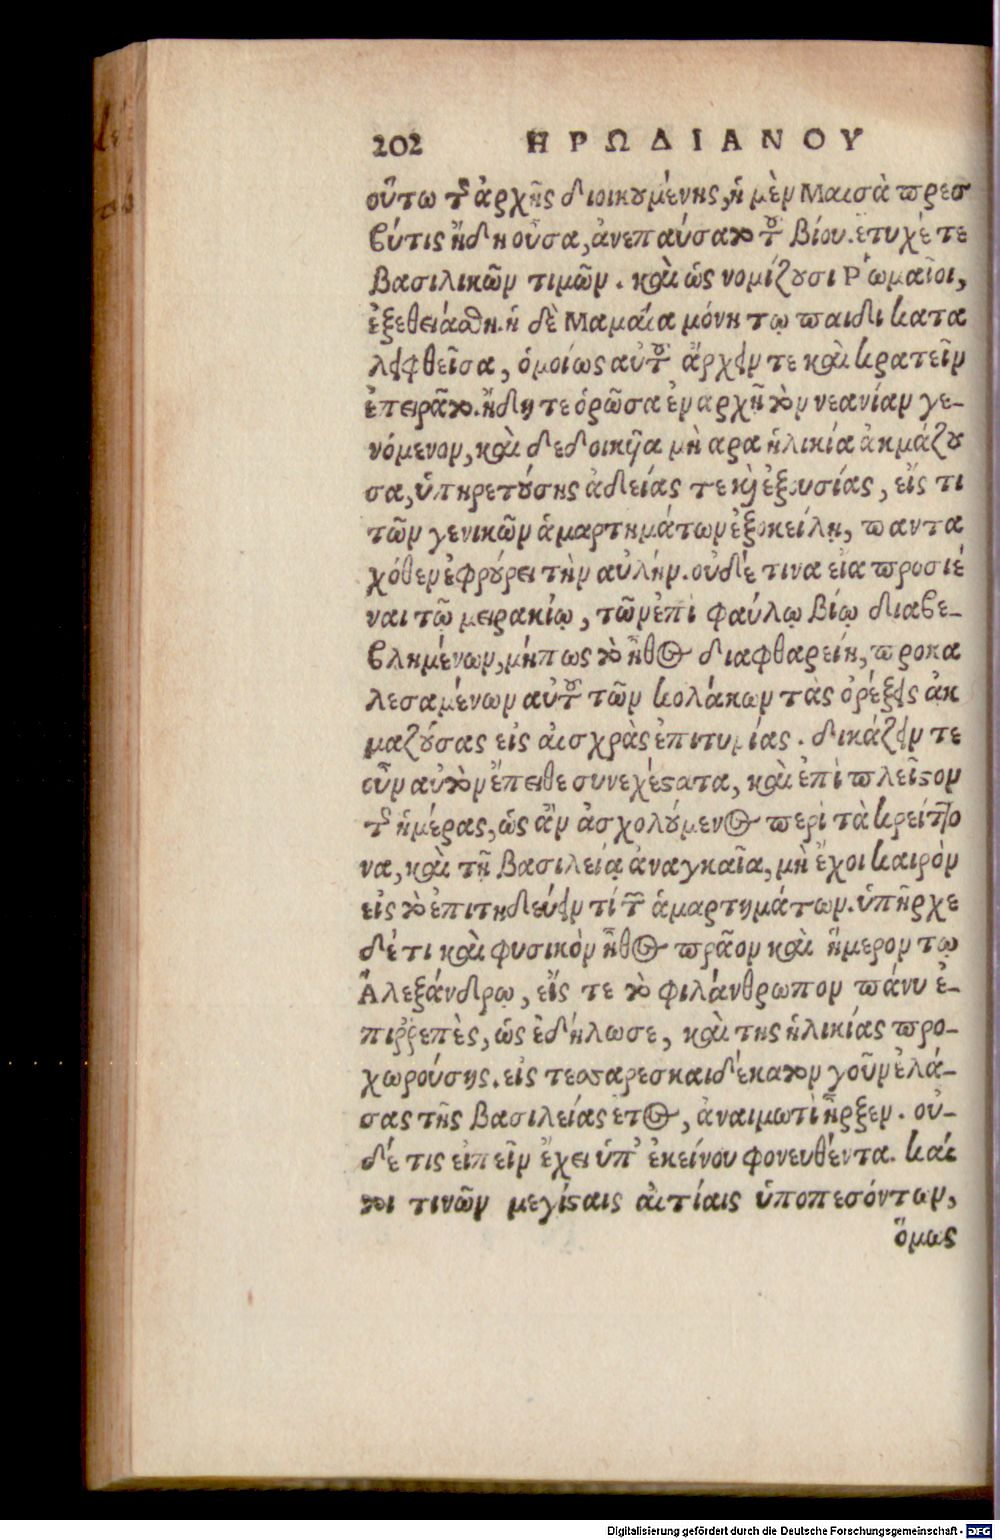 202 ΗΡΩΔΙΑΝΟΥ
οὕτω τῆς ἀρχῆς διοικουμένης, ἡ μὲν Μαισὰ πρεσ
βύτις ἤδη οὖσα, ἀνεπαύσατο τοῦ βίου. ἔτυχέ τε
βασιλικῶν τιμῶν. καὶ ὡς νομίζουσι Ῥωμαῖοι,
ἐξεθειάσθη. ἡ δὲ Μαμαία μόνη τῳ παιδὶ κατα
λειφθεῖσα, ὁμοίως αὐτοῦ ἄρχειν τε καὶ κρατεῖν
ἐπειρᾶτο. ἤδη τε ὁρῶσα ἐν αρχῇ τὸν νεανίαν γε-
νόμενον, καὶ δεδοικῦια μὴ αρα ἡλικία ἀκμάζου
σα, ὑπηρετούσης ἀδείάς τε καὶ ἐξουσίας, εἴς τι
τῶν γενικῶν ἁμαρτημάτων ἐξοκείλῃ, παντα
χόθεν ἐφρούρει τὴν αὐλήν. οὐδέ τινα εἰα προσιέ
ναι τῷ μειρακίῳ, τῶν ἐπὶ φαύλῳ βίῳ διαβε-
βλημένων, μήπως τὸ ἦθος διαφθαρείη, προκα
λεσαμένων αὐτοῦ τῶν κολάκων τὰς ὀρέξεις ἀκ
μαζούσας εἰς αἰσχρὰς ἐπιτυμίας. δικάζειν τε
οὖν αὐτὸν ἔπειθε συνεχέστατα, καὶ ἐπὶ πλεῖστον
τῆς ἡμέρας, ὡς ἂν ἀσχολούμενος περὶ τὰ κρείττο
να, καὶ τῇ βασιλείᾳ ἀναγκαῖα, μὴ ἔχοι καιρὸν
εἰς τὸ ἐπιτηδεύειν τί τῶν ἁμαρτημάτων. ὑπῆρχε
δέ τι καὶ φυσικὸν ἦθος πρᾶον καὶ ἥμερον τῳ
Ἀλεξάνδρῳ, εἴς τε τὸ φιλάνθρωπον πάνυ ἐ-
πιῤῥεπὲς, ὡς ἐδήλωσε, καὶ της ἡλικίας προ-
χωρούσης. εἰς τεσσαρεσκαιδέκατον γοῦν ἐλά-
σας τῆς βασιλείας ἔτος, ἀναιμωτὶ ἦρξεν. οὐ-
δέ τις εἰπεῖν ἔχει ὑπ' ἐκείνου φονευθέντα. καί
τοι τινῶν μεγίσταις αἰτίαις ὑποπεσόντων,
ὅμως
Digitalisierung gefördert durch die Deutsche Forschungsgemeinschaft - DFG